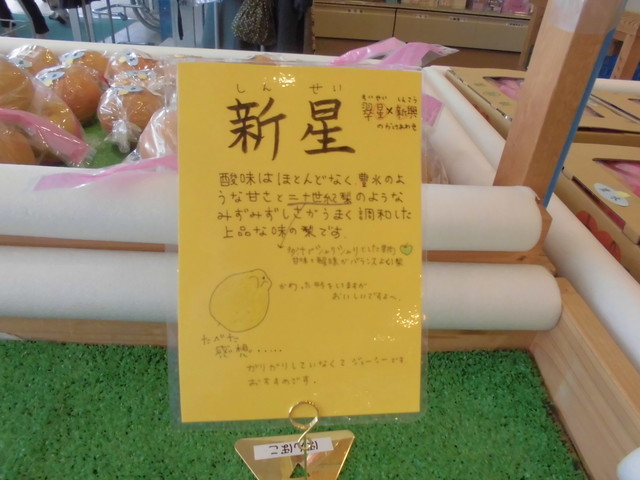 しんせい
新星
すいせい しんこう
翠星×新興
のかけあわせ
酸味はほとんどなく豊水のよ
うな甘さと二十世紀梨のような
みずみずしさがうまく調和した
上品な味の梨です。
甘味と酸味がバランスよく梨
かわった形をしてますが
おいしいですよ〜。
たべた
感想‥‥‥
ガリガリしていなくてジューシーです
おすすめです。